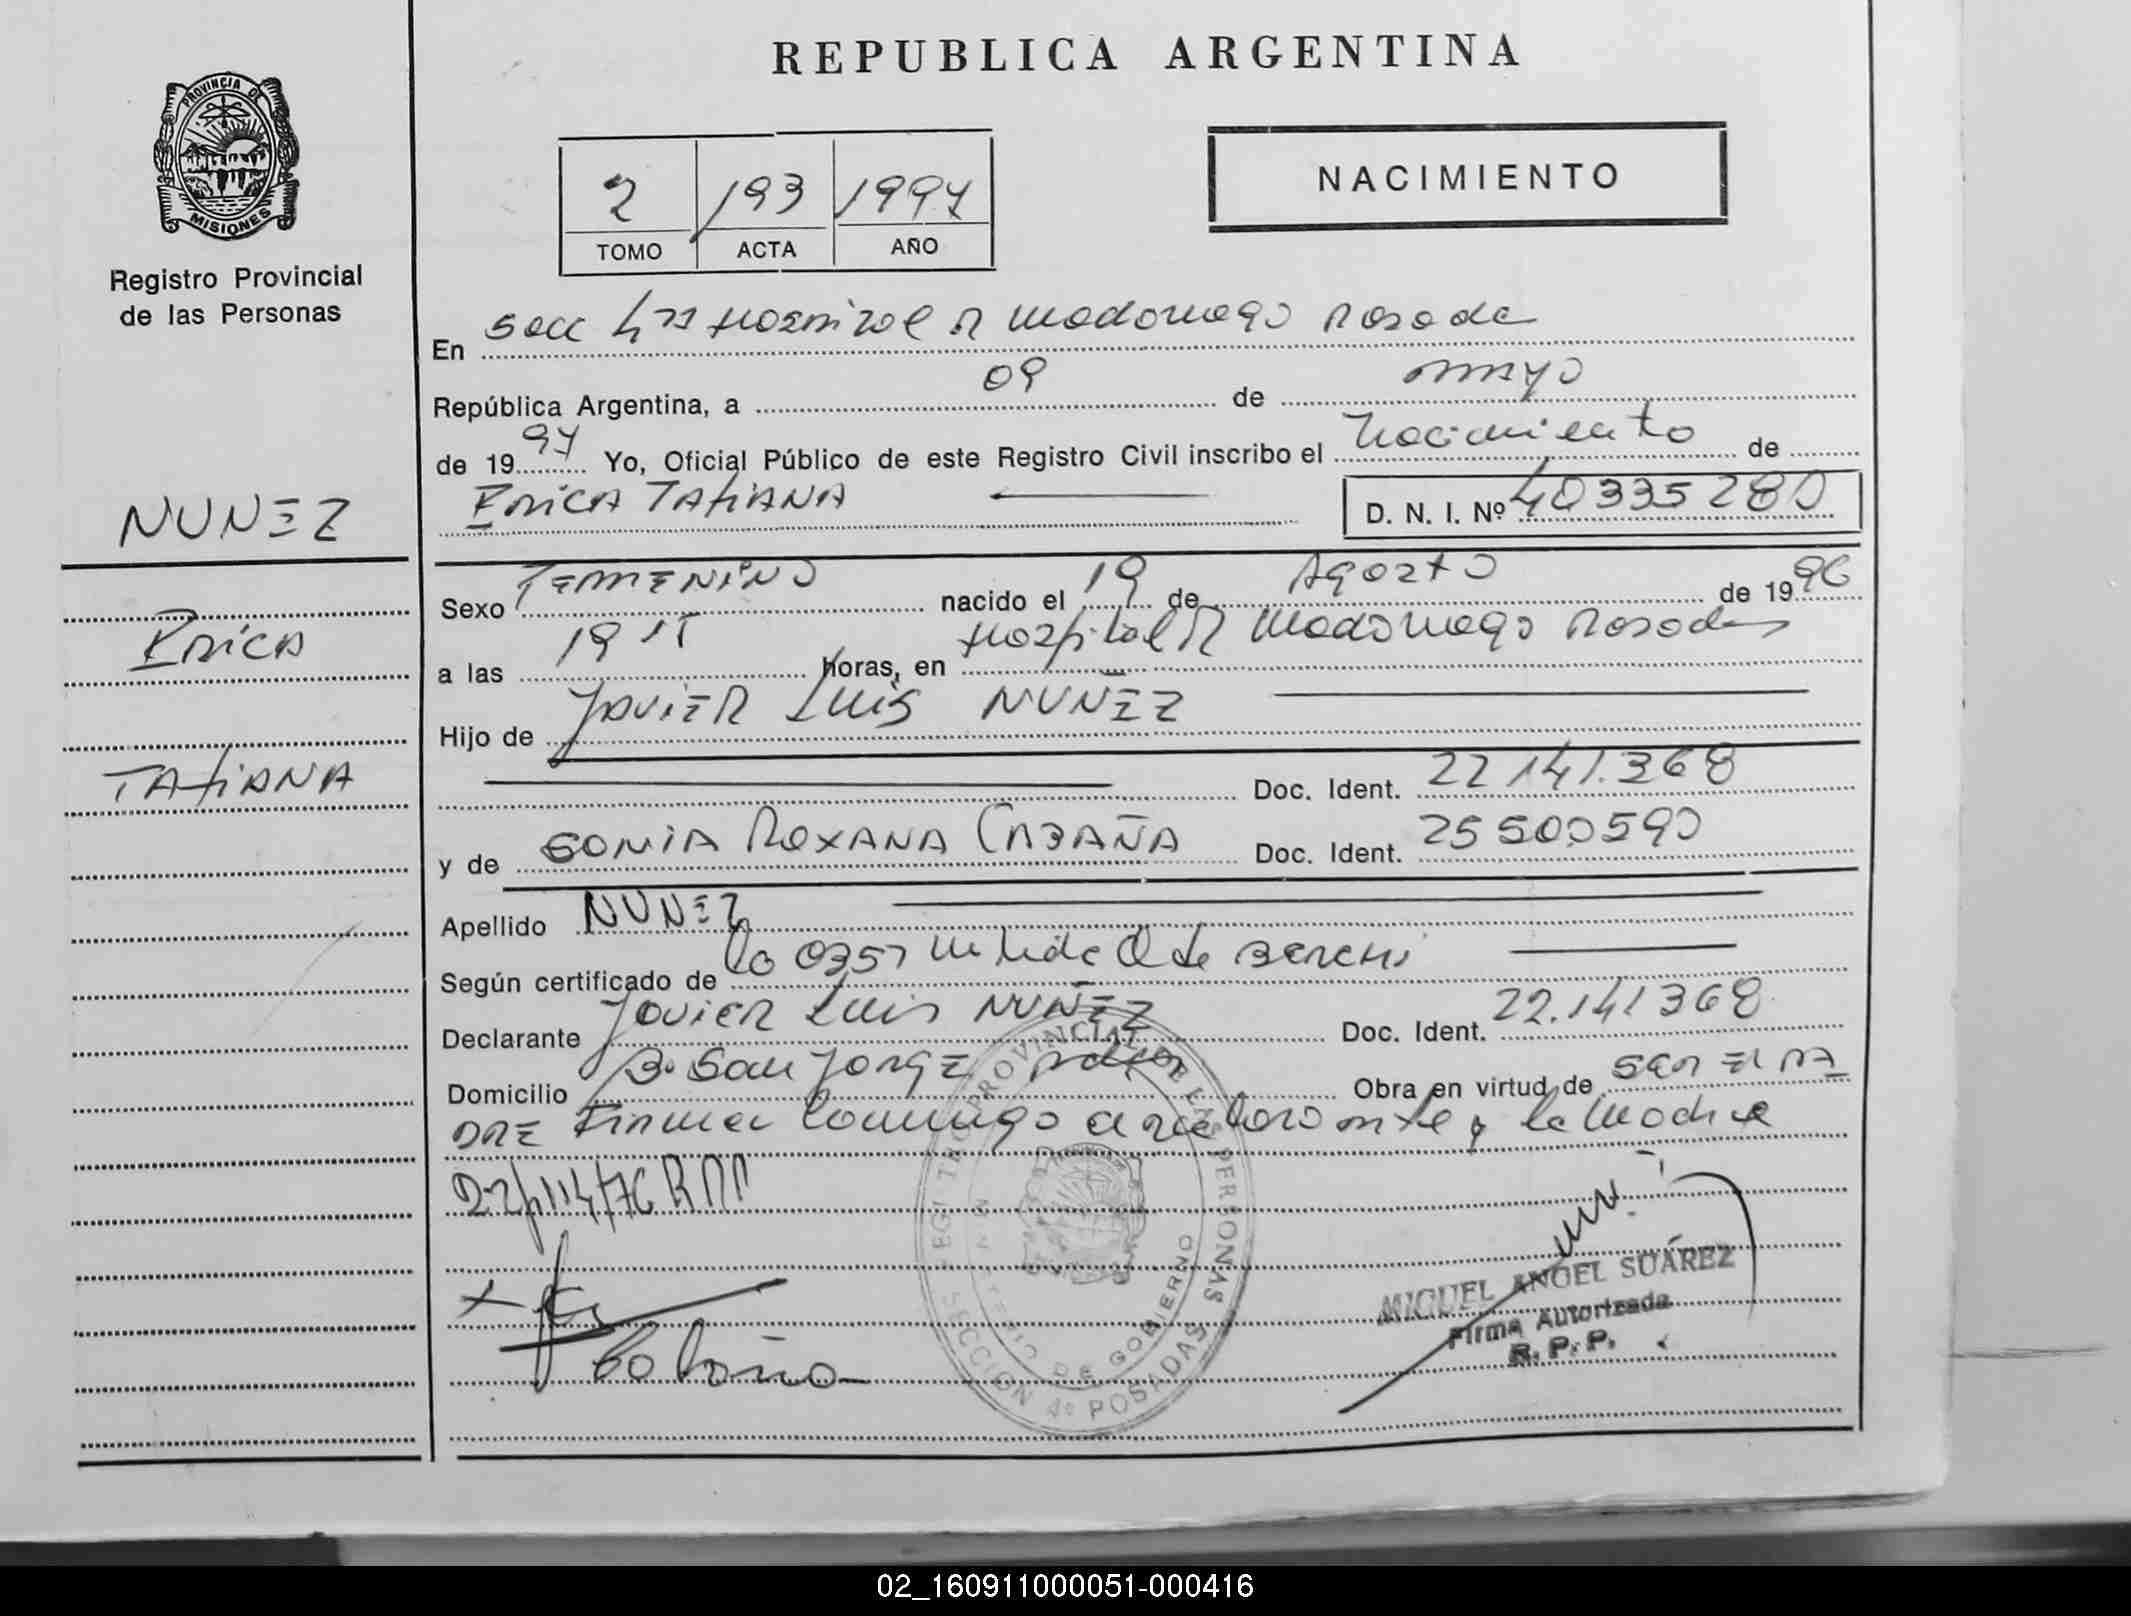 REPUBLICA ARGENTINA
PROVINCIA DE
MISIONES
Registro Provincial
de las Personas
2 193 1997
TOMO ACTA AÑO
NACIMIENTO
En Secc 4ta Hospital R Madariaga Posadas
República Argentina, a 09 de mayo
de 1997 Yo, Oficial Público de este Registro Civil inscribo el Nacimiento de
ERICA TATIANA D. N. I. Nº 40335280
NUNEZ
Erica
TATIANA
Sexo FEMENINO nacido el 19 de Agosto de 1996
a las 19 15 horas, en Hospital R Madariaga Posadas
Hijo de JAVIER LUIS NUNEZ
Doc. Ident. 22 141.368
y de SONIA ROXANA CABAÑA Doc. Ident. 25500590
Apellido NUNEZ
Según certificado de la Obst de
Declarante Javier Luis NUÑEZ Doc. Ident. 22.141368
Domicilio B. San Jorge Obra en virtud de SER EL PA
DRE Firma Conmigo el declarante y la Madre
Cabaña
REGISTRO PROVINCIAL DE LAS PERSONAS
MINISTERIO DE GOBIERNO
SECCION 4º POSADAS
MIGUEL ANGEL SUÁREZ
Firma Autorizada
R. P. P.
02_160911000051-000416